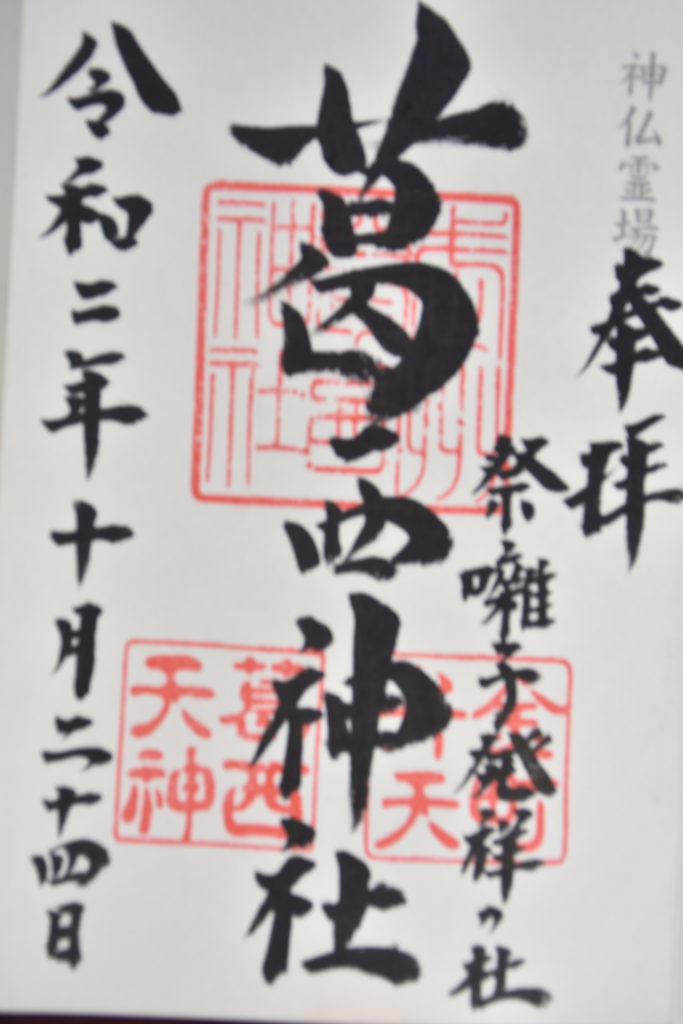 神仏霊場
奉拝
祭囃子発祥の杜
葛西神社
令和二年十月二十四日
葛西
天神